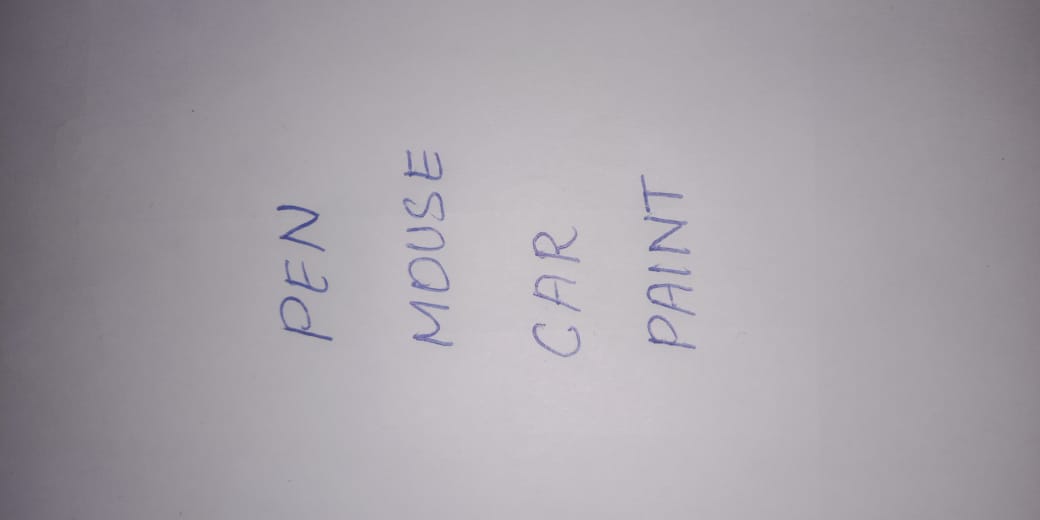 PEN
MOUSE
CAR
PAINT